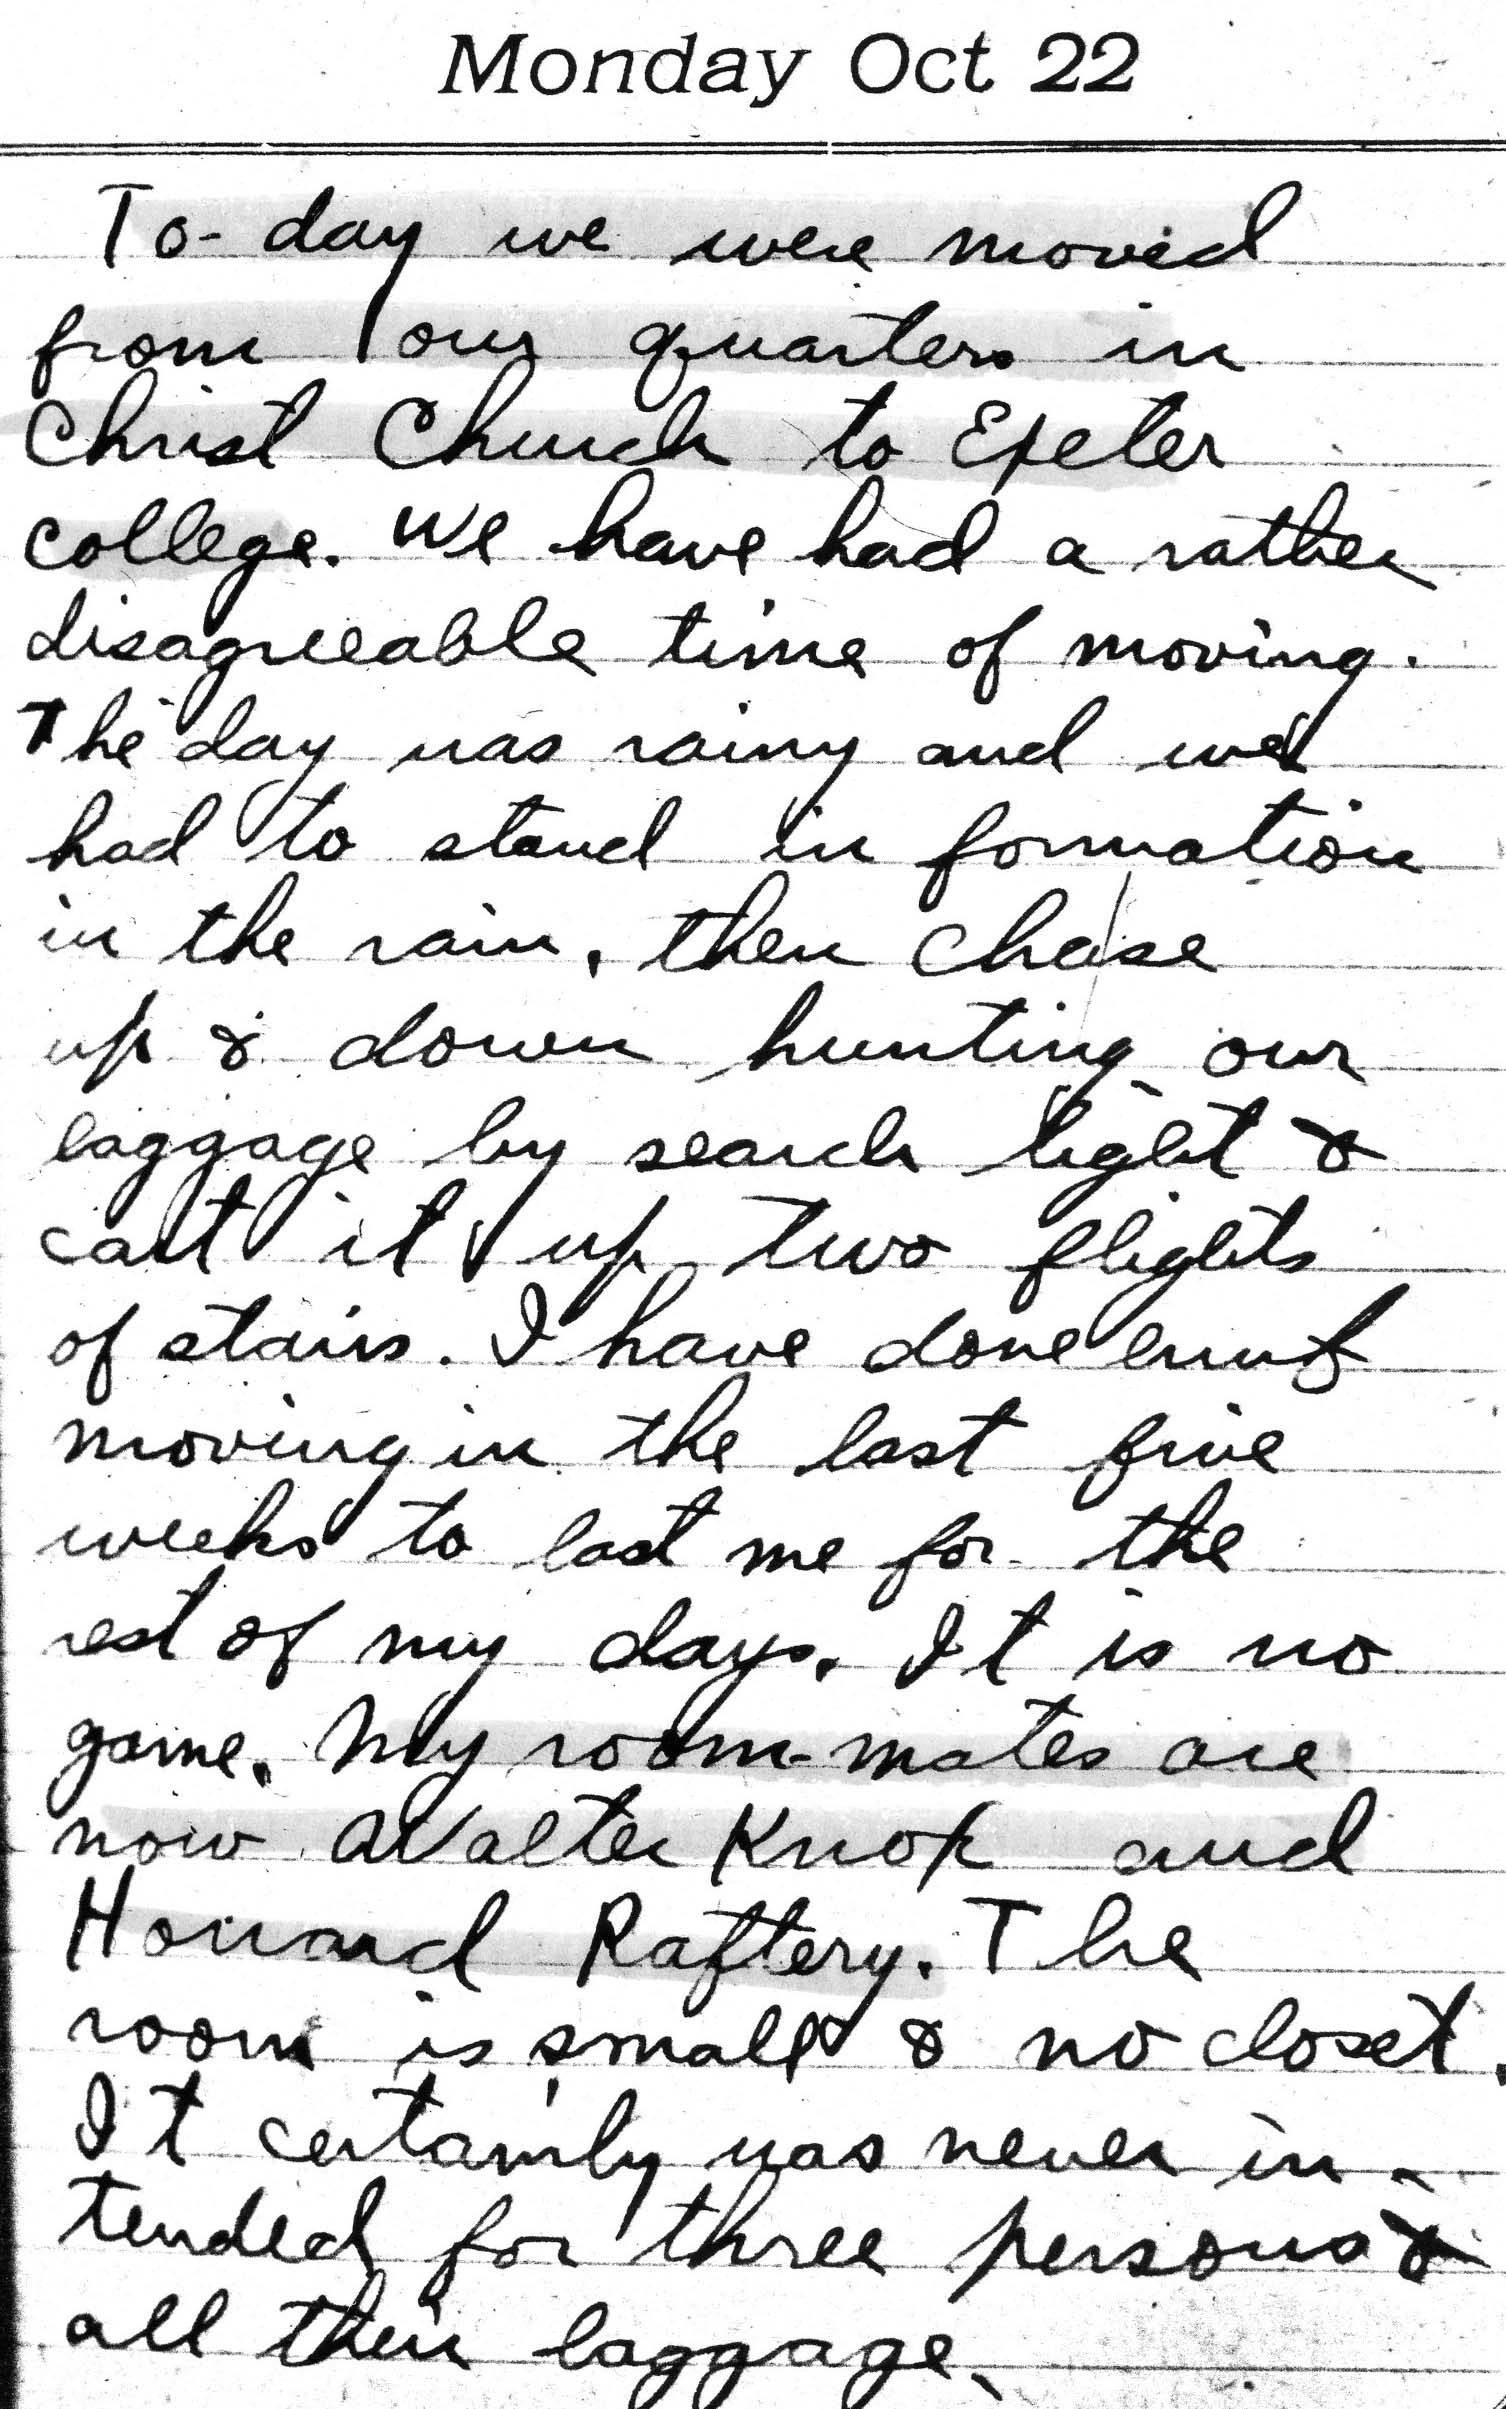 Monday Oct 22
To-day we were moved
from our quarters in
Christ Church to Exeter
college. We have had a rather
disagreeable time of moving.
The day was rainy and we
had to stand in formation
in the rain, then chase
up & down hunting our
laggage by search light &
cart it up two flights
of stairs. I have done enuf
moving in the last five
weeks to last me for the
rest of my days. It is no
game. My room-mates are
now Walter Knox and
Howard Raftery. The
room is small & no closet.
It certainly was never in-
tended for three persons &
all their laggage.